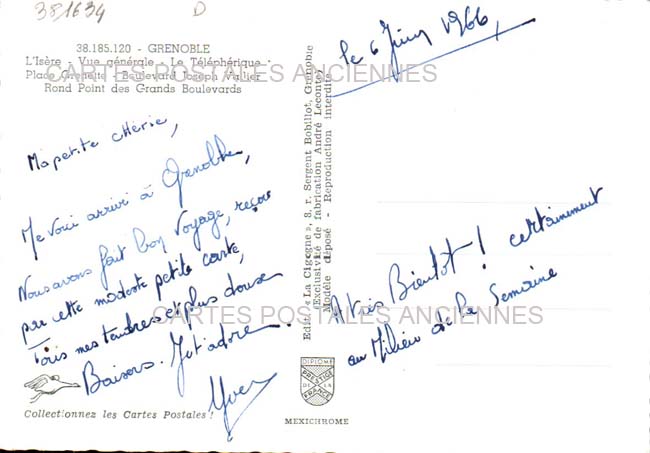 381634 D
38.185.120 - GRENOBLE
L'Isère - Vue générale - Le Téléphérique
Place Grenette - Boulevard Joseph Vallier
Rond Point des Grands Boulevards
le 6 Juin 1966
CARTES POSTALES ANCIENNES
Ma petite chérie,
Me voici arrivé à Grenoble,
Nous avons fait bon voyage, reçois
par cette modeste petite carte,
Tous mes tendres et plus doux
Baisers. Je t'adore.
Yves
Collectionnez les Cartes Postales !
Edit. « La Cigogne », 8, r. Sergent Bobillot, Grenoble
(Exclusivité de fabrication André Leconte)
Modèle déposé - Reproduction interdite
A très Bientôt ! certainement
au Milieu de la Semaine
CARTES POSTALES ANCIENNES
DIPLOME
PRESTIGE
DE LA
FRANCE
MEXICHROME